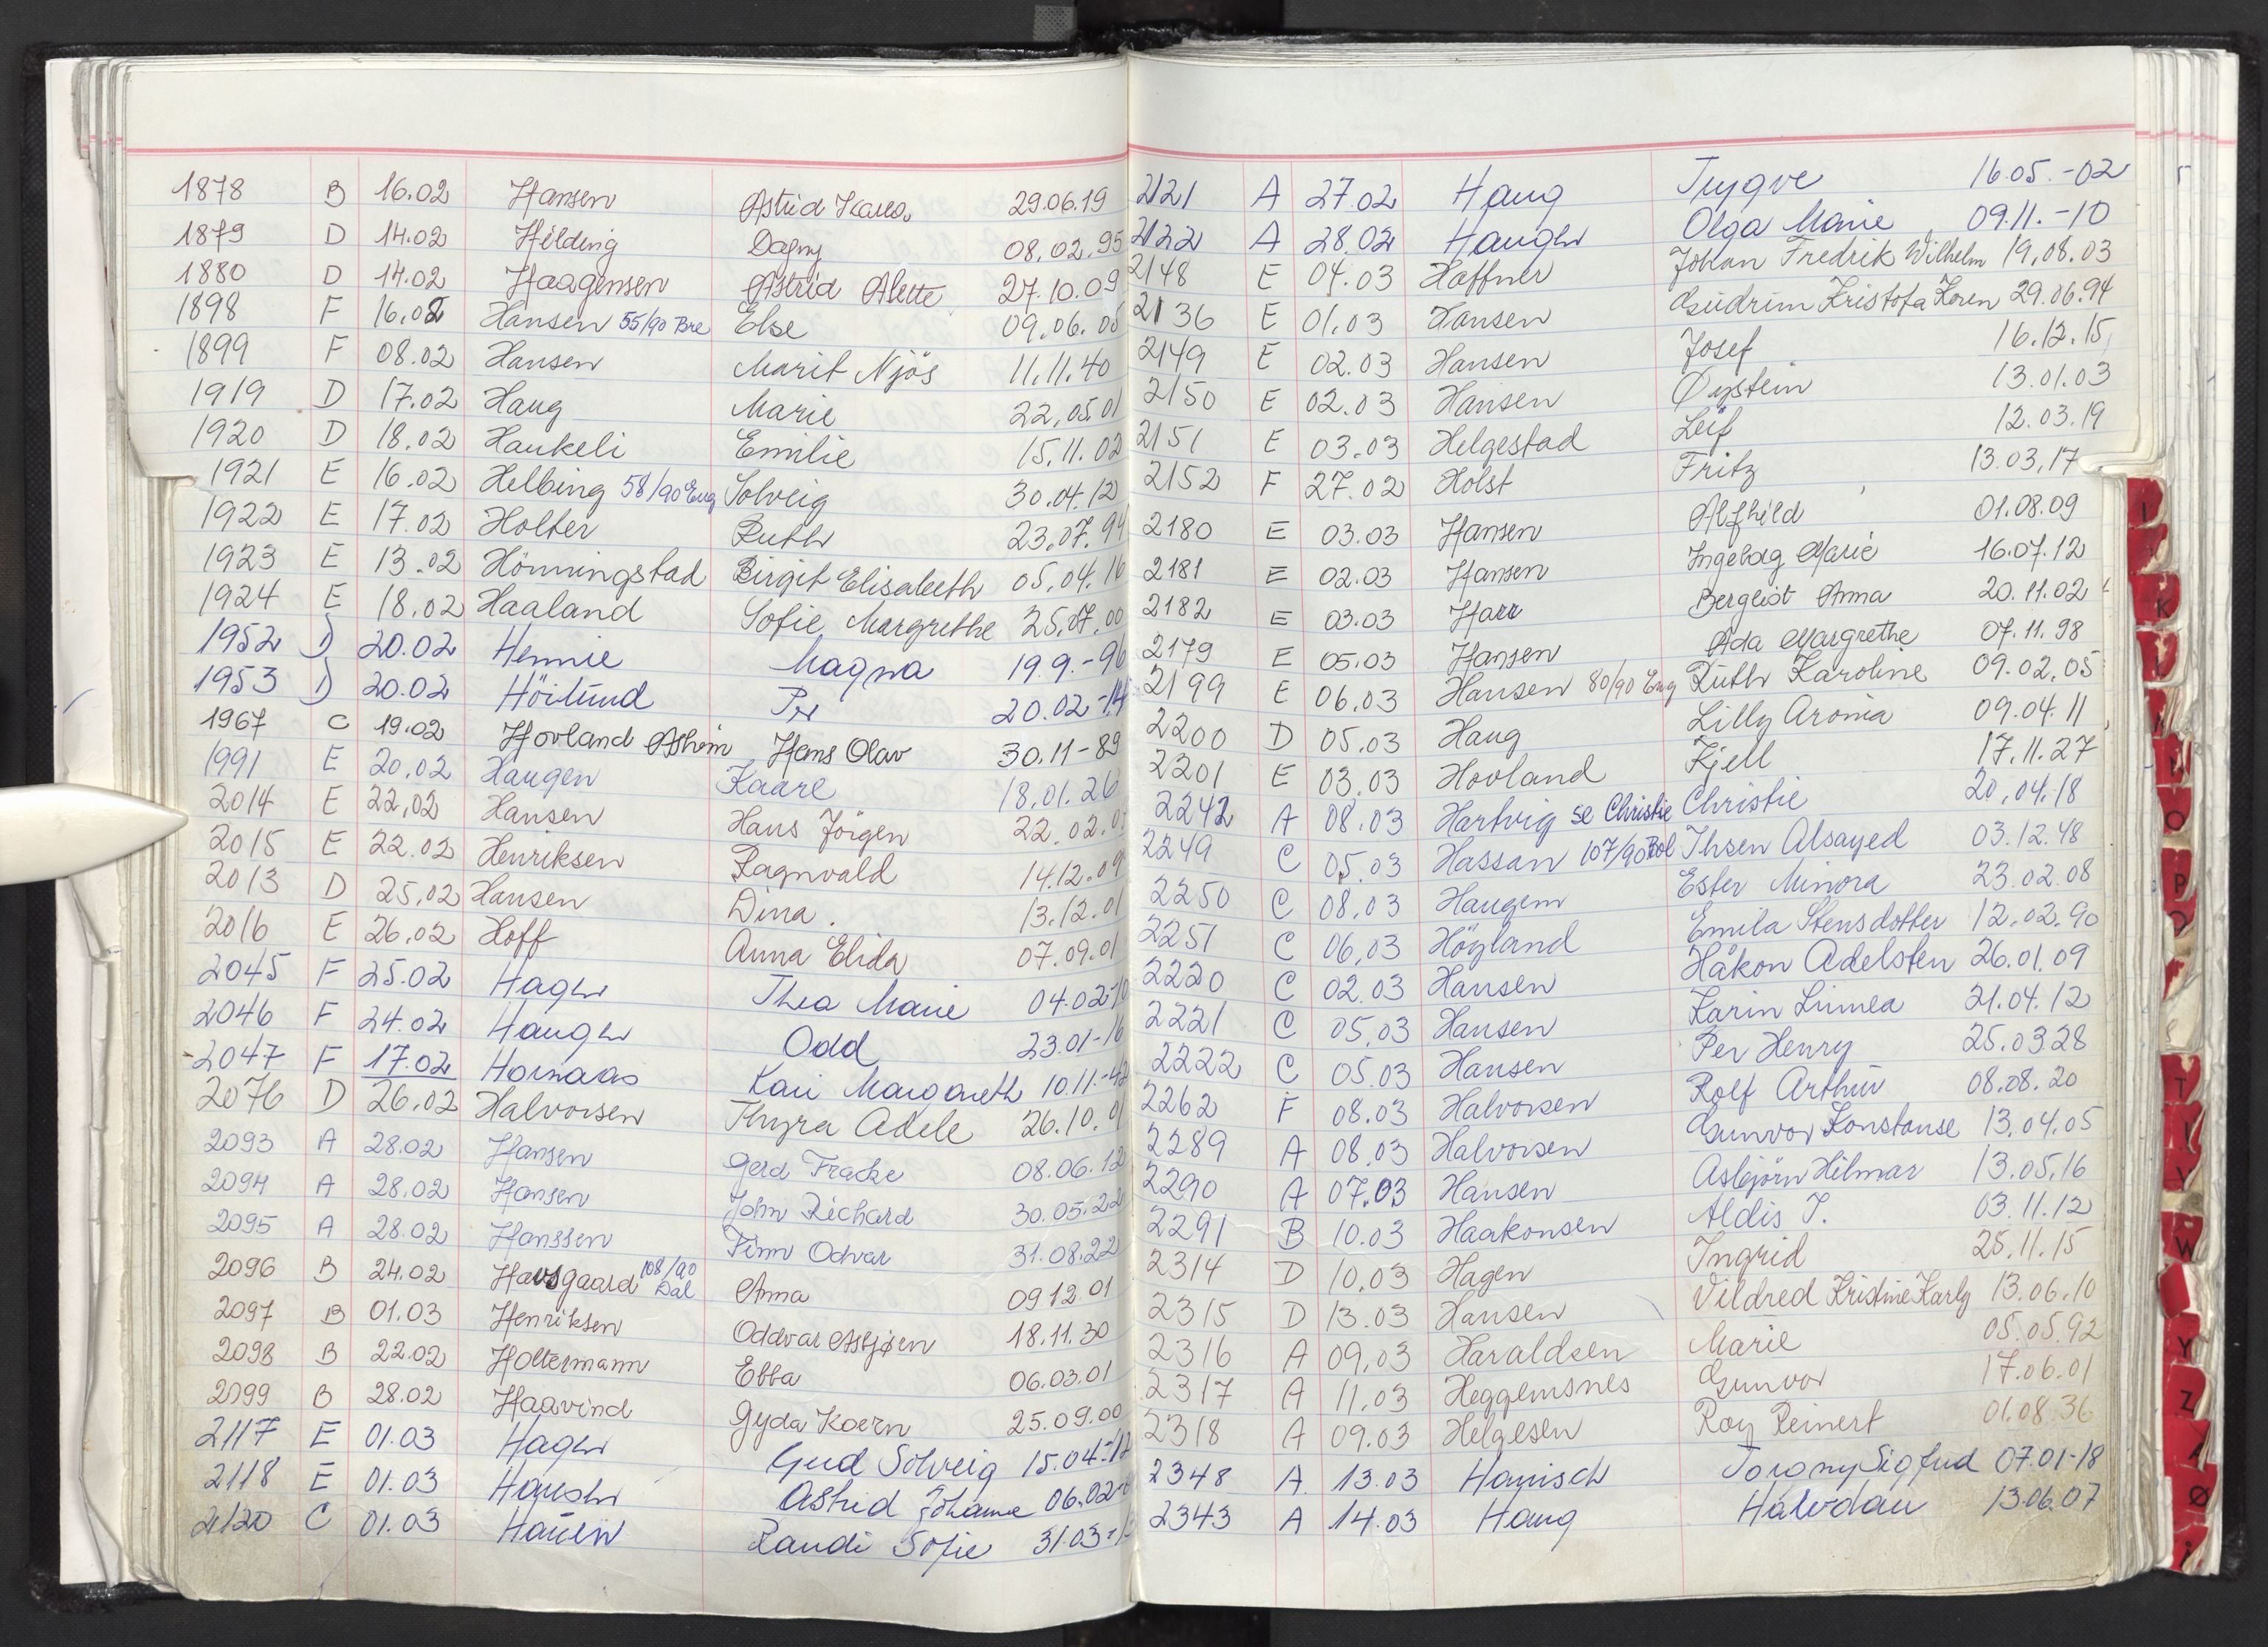 1878 B 16.02 Hansen Astrid Karla 29.06.19
1879 D 14.02 Hilding Dagny 08.02.95
1880 D 14.02 Haagensen Astrid Alette 27.10.09
1898 F 16.02 Hansen 55/90 Bre Else 09.06.06
1899 F 08.02 Hansen Marit Njøs 11.11.40
1919 D 17.02 Haug Marie 22.05.01
1920 D 18.02 Haukeli Emilie 15.11.02
1921 E 16.02 Helbing 58/90 Eng Solveig 30.04.12
1922 E 17.02 Holter Ruth 23.07.94
1923 E 13.02 Hönningstad Birgit Elisabeth 05.04.16
1924 E 18.02 Haaland Sofie Margrethe 25.07.00
1952 D 20.02 Hennie Magna 19.9.-96
1953 D 20.02 Höilund Per 20.02-14
1967 C 19.02 Hovland Asheim Hans Olav 30.11-89
1991 E 20.02 Haugen Kaare 18.01.26
2014 E 22.02 Hansen Hans Jörgen 22.02.
2015 E 22.02 Henriksen Ragnvald 14.12.09
2013 D 25.02 Hansen Dina. 13.12.01
2016 E 26.02 Hoff Anna Elida 07.09.01
2045 F 25.02 Hagen Thea Marie 04.02-10
2046 F 24.02 Haugen Odd 23.01-16
2047 F 17.02 Hornaas Kari Margareth 10.11.-42
2076 D 26.02 Halvorsen Thyra Adele 26.10.01
2093 A 28.02 Hansen Gerd Fracke 08.06.12
2094 A 28.02 Hansen John Richard 30.05.22
2095 A 28.02 Hanssen Finn Odvar 31.08.22
2096 B 24.02 Havsgaard 108/90 Dal Anna 09.12.01
2097 B 01.03 Henriksen Oddvar Asbjøen 18.11.30
2098 B 22.02 Holtermann Ebba 06.03.01
2099 B 28.02 Haavind Gyda Koern 25.09.00
2117 E 01.03 Hagen Gerd Solveig 15.04-12
2118 E 01.03 Astrid Johanne 06.02
2120 C 01.03 Randi Sofie 31.03-
2121 A 27.02 Haug Trygve 16.05.-02
2122 A 28.02 Haugen Olga Marie 09.11.-10
2148 E 04.03 Haffner Johan Fredrik Wilhelm 19.08.03
2136 E 01.03 Hansen Gudrun Kristofa Koren 29.06.94
2149 E 02.03 Hansen Josef 16.12.15
2150 E 02.03 Hansen Øystein 13.01.03
2151 E 03.03 Helgestad Leif 12.03.19
2152 F 27.02 Holst Fritz 13.03.17
2180 E 03.03 Hansen Alfhild 01.08.09
2181 E 02.03 Hansen Ingeborg Marie 16.07.12
2182 E 03.03 Harr Bergliot Anna 20.11.02
2179 E 05.03 Hansen Ada Margrethe 07.11.98
2199 E 06.03 Hansen 80/90 Eng Ruth Karoline 09.02.05
2200 D 05.03 Haug Lilly Aronia 09.04.11
2201 E 03.03 Hovland Kjell 17.11.27
2242 A 08.03 Hartvig se Christie Christie 20.04.18
2249 C 05.03 Hassan 107/90 Bol Ihsen Alsayed 03.12.48
2250 C 08.03 Haugem Ester Minora 23.02.08
2251 C 06.03 Höyland Emila Stensdotter 12.02.90
2220 C 02.03 Hansen Håkon Adelsten 26.01.09
2221 C 05.03 Hansen Karin Linnea 21.04.12
2222 C 05.03 Hansen Per Henry 25.03.28
2262 F 08.03 Halvorsen Rolf Arthur 08.08.20
2289 A 08.03 Halvorsen Gunvor Konstanse 13.04.05
2290 A 07.03 Hansen Asbjørn Hilmar 13.05.16
2291 B 10.03 Haakonsen Aldis J. 03.11.12
2314 D 10.03 Hagen Ingrid 25.11.15
2315 D 13.03 Hansen Vildred Kristine Karly 13.06.10
2316 A 09.03 Haraldsen Marie 05.05.92
2317 A 11.03 Heggemsnes Gunvor 17.06.01
2318 A 09.03 Helgesen Roy Reinert 01.08.36
2348 A. 13.03 Hanisch Torgny Sigfud 07.01-18
2343 A 14.03 Haug Halvdan 13.06.07
I
K
O
P
T
V
W
Y
Z
Ø